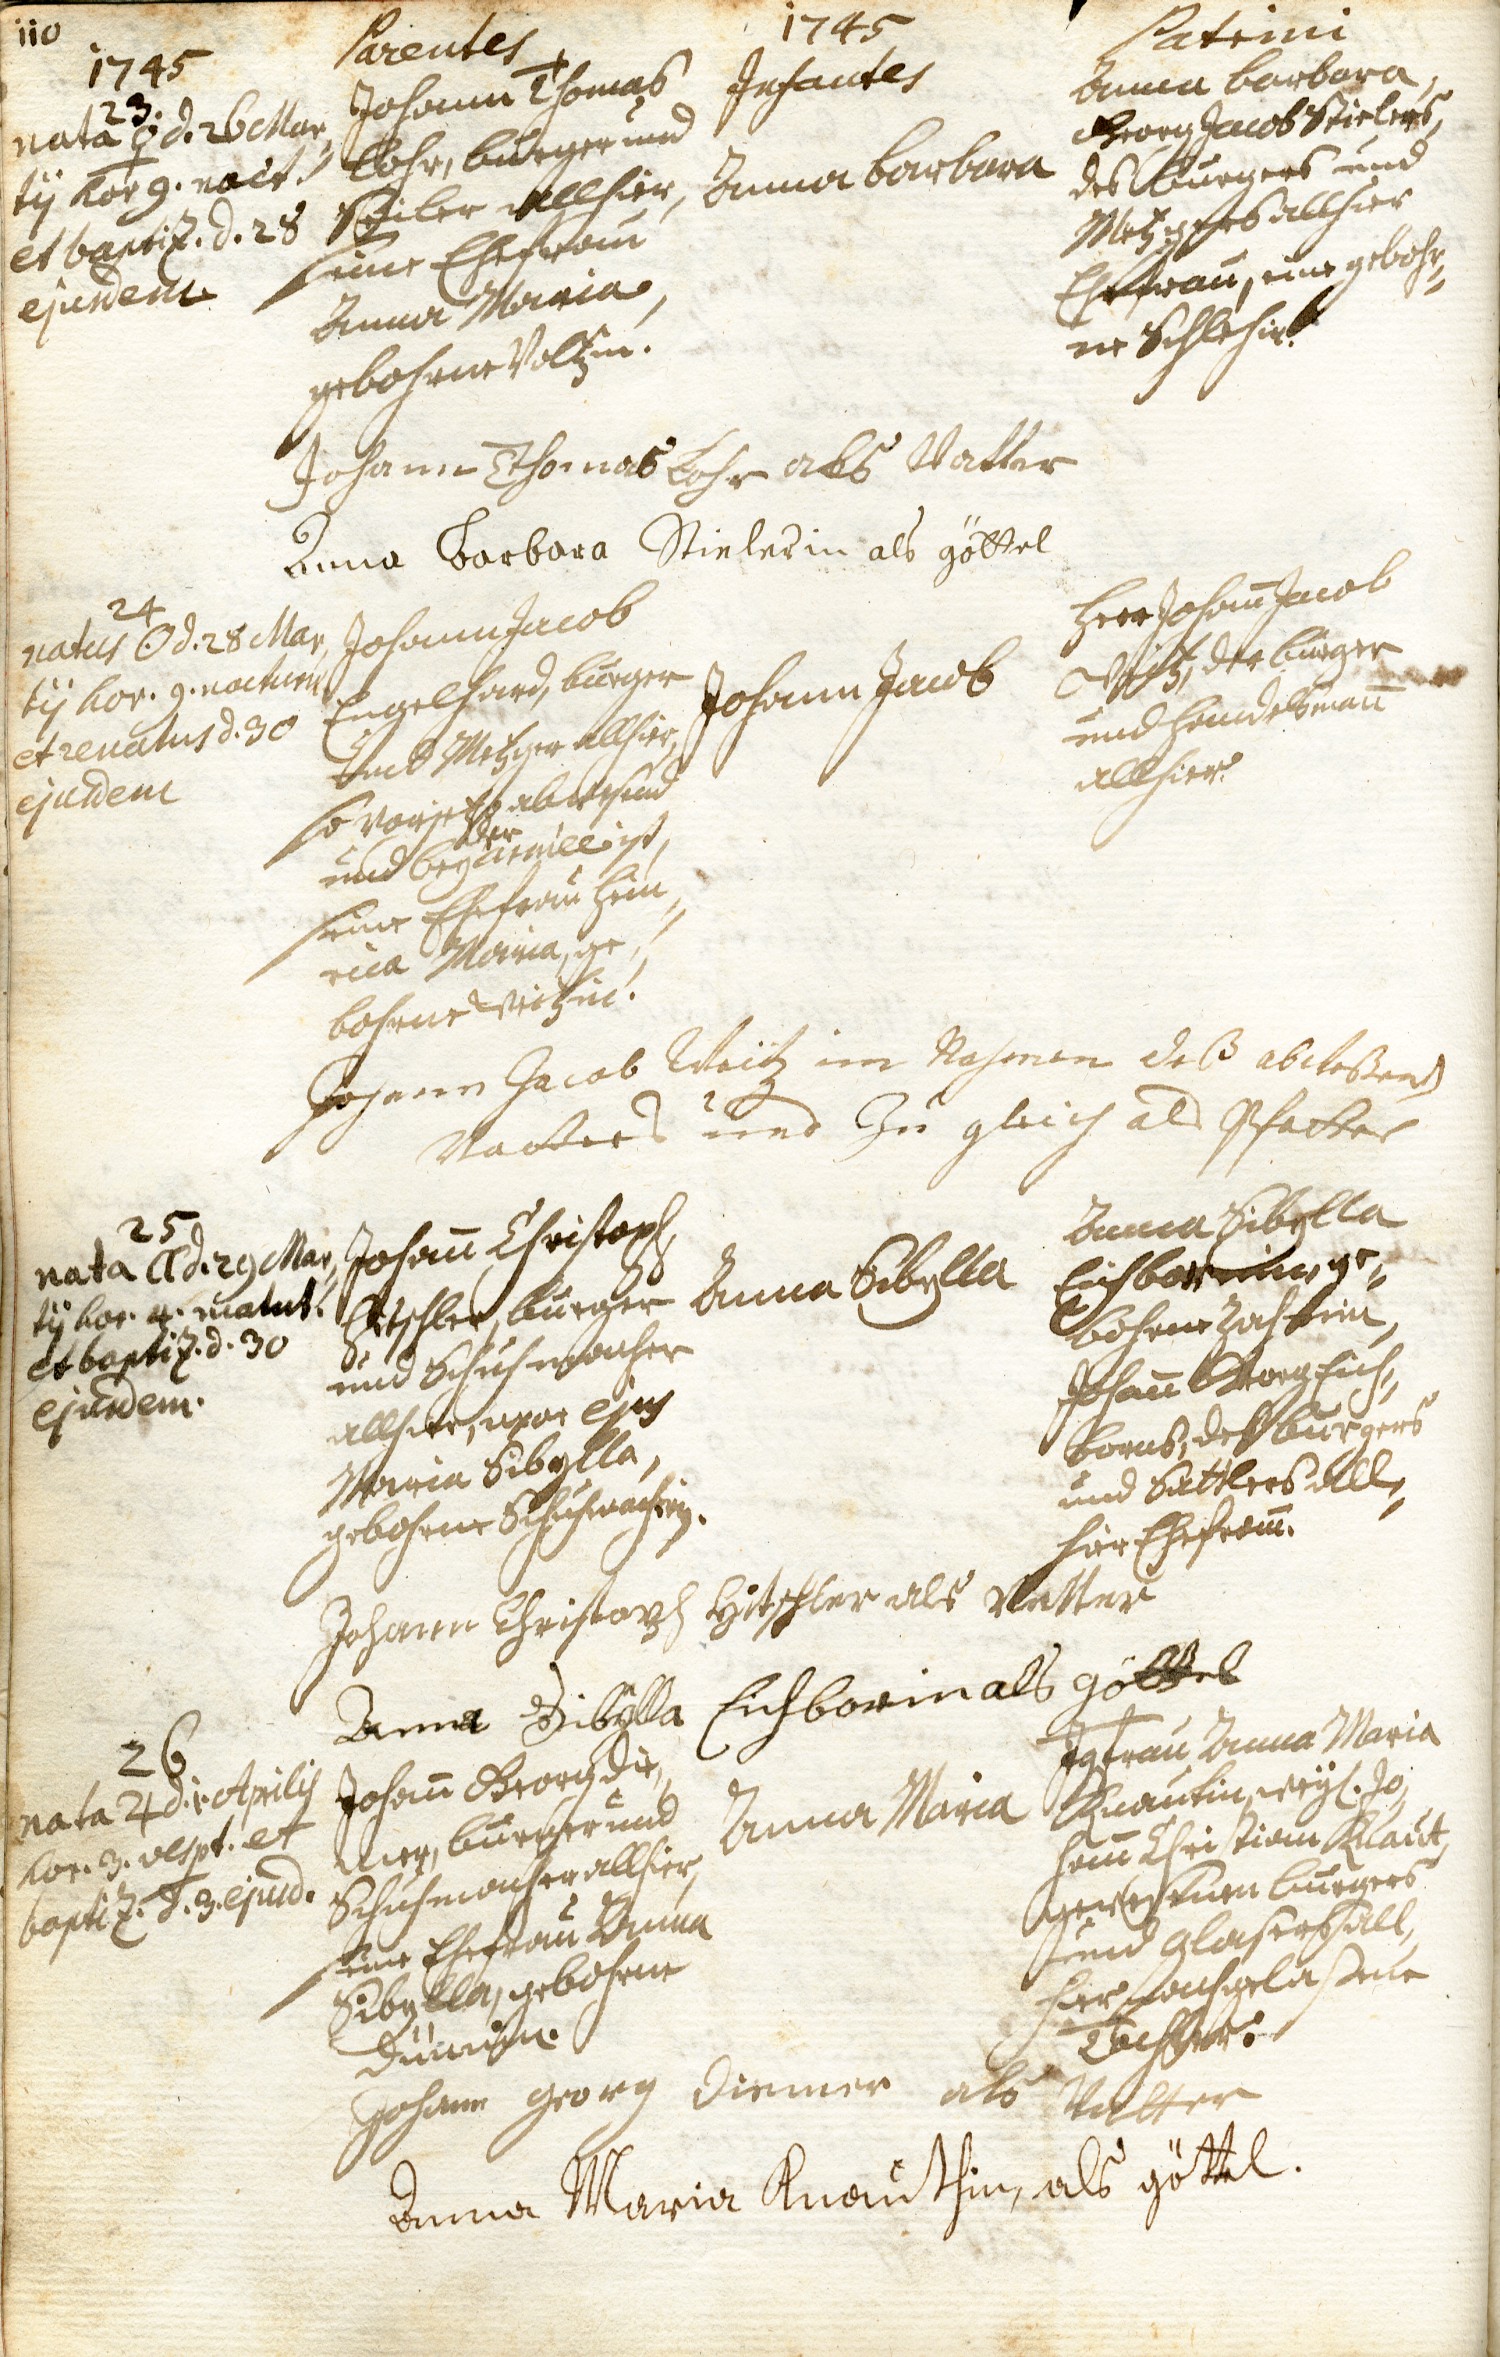 110
1745
Parentes
1745
Infantes
Patrini
23.
nata ♀ d. 26 Mar,
tij hor 9. noct.
et baptiz. d. 28
ejusdem.
Johann Thomas
Lohr, burger und
Seiler allhier,
seine Ehefrau
Anna Maria,
gebohrne Voltzin.
Anna barbara
Anna barbara,
Georg Jacob Stielers,
des burgers und
Metzgers allhier
Ehefrau, eine gebohr,,
ne Schlehin.
Johann Thomas Lohr als Vatter
Anna Barbara Stielerin als göttel
24
natus ☉ d. 28 Mar,
tij hor. 9. nocturn
et renatus d. 30
ejusdem
Johann Jacob
Engelhard, burger
und Metzger allhier,
so vorjetzo abwesend
und bey der armee ist,
seine Ehefrau Hen,,
rica Maria, ge,,
bohrne Weitzin.
Johann Jacob
Herr Johann Jacob
Weitz, der burger
und Handelsmann
allhier.
Johann Jacob Weitz im Nahmen deß abweßend
Vatters und Zu gleich als Pfetter
25
nata ☾ d. 29 Mar,
tij hor. 4. matut.
et baptiz. d. 30
ejusdem.
Johann Christoph
Hitschler, burger
und Schuhmacher
allhier, uxor ejus
Maria Sibylla,
gebohrne Schuhmachrin.
Anna Sibylla
Anna Sibylla
Eichbornin, ge,,
bohrne
Johann Georg Eich,,
borns, des burgers
und Sattlers all,,
hier Ehefrau.
Johann Christoph Hitschler als Vatter
Anna Sibylla Eichbornin als göttel
26
nata ♃ d. 1. Aprilis
hor. 3. vespt. et
baptiz. d. 3. ejusd.
Johann Georg Die,,
mer, burger und
Schuhmacher allhier,
seine Ehefrau Anna
Sibylla, gebohrne
Anna Maria
Jgfrau Anna Maria
Knautin, weyl. Jo,
hann Christian Knaut,
gewesenen burgers
und Glasers all,
hier nachgelaßene
Tochter.
Johann Georg Diemer als Vatter
Anna Maria Knauthin, als göttel.